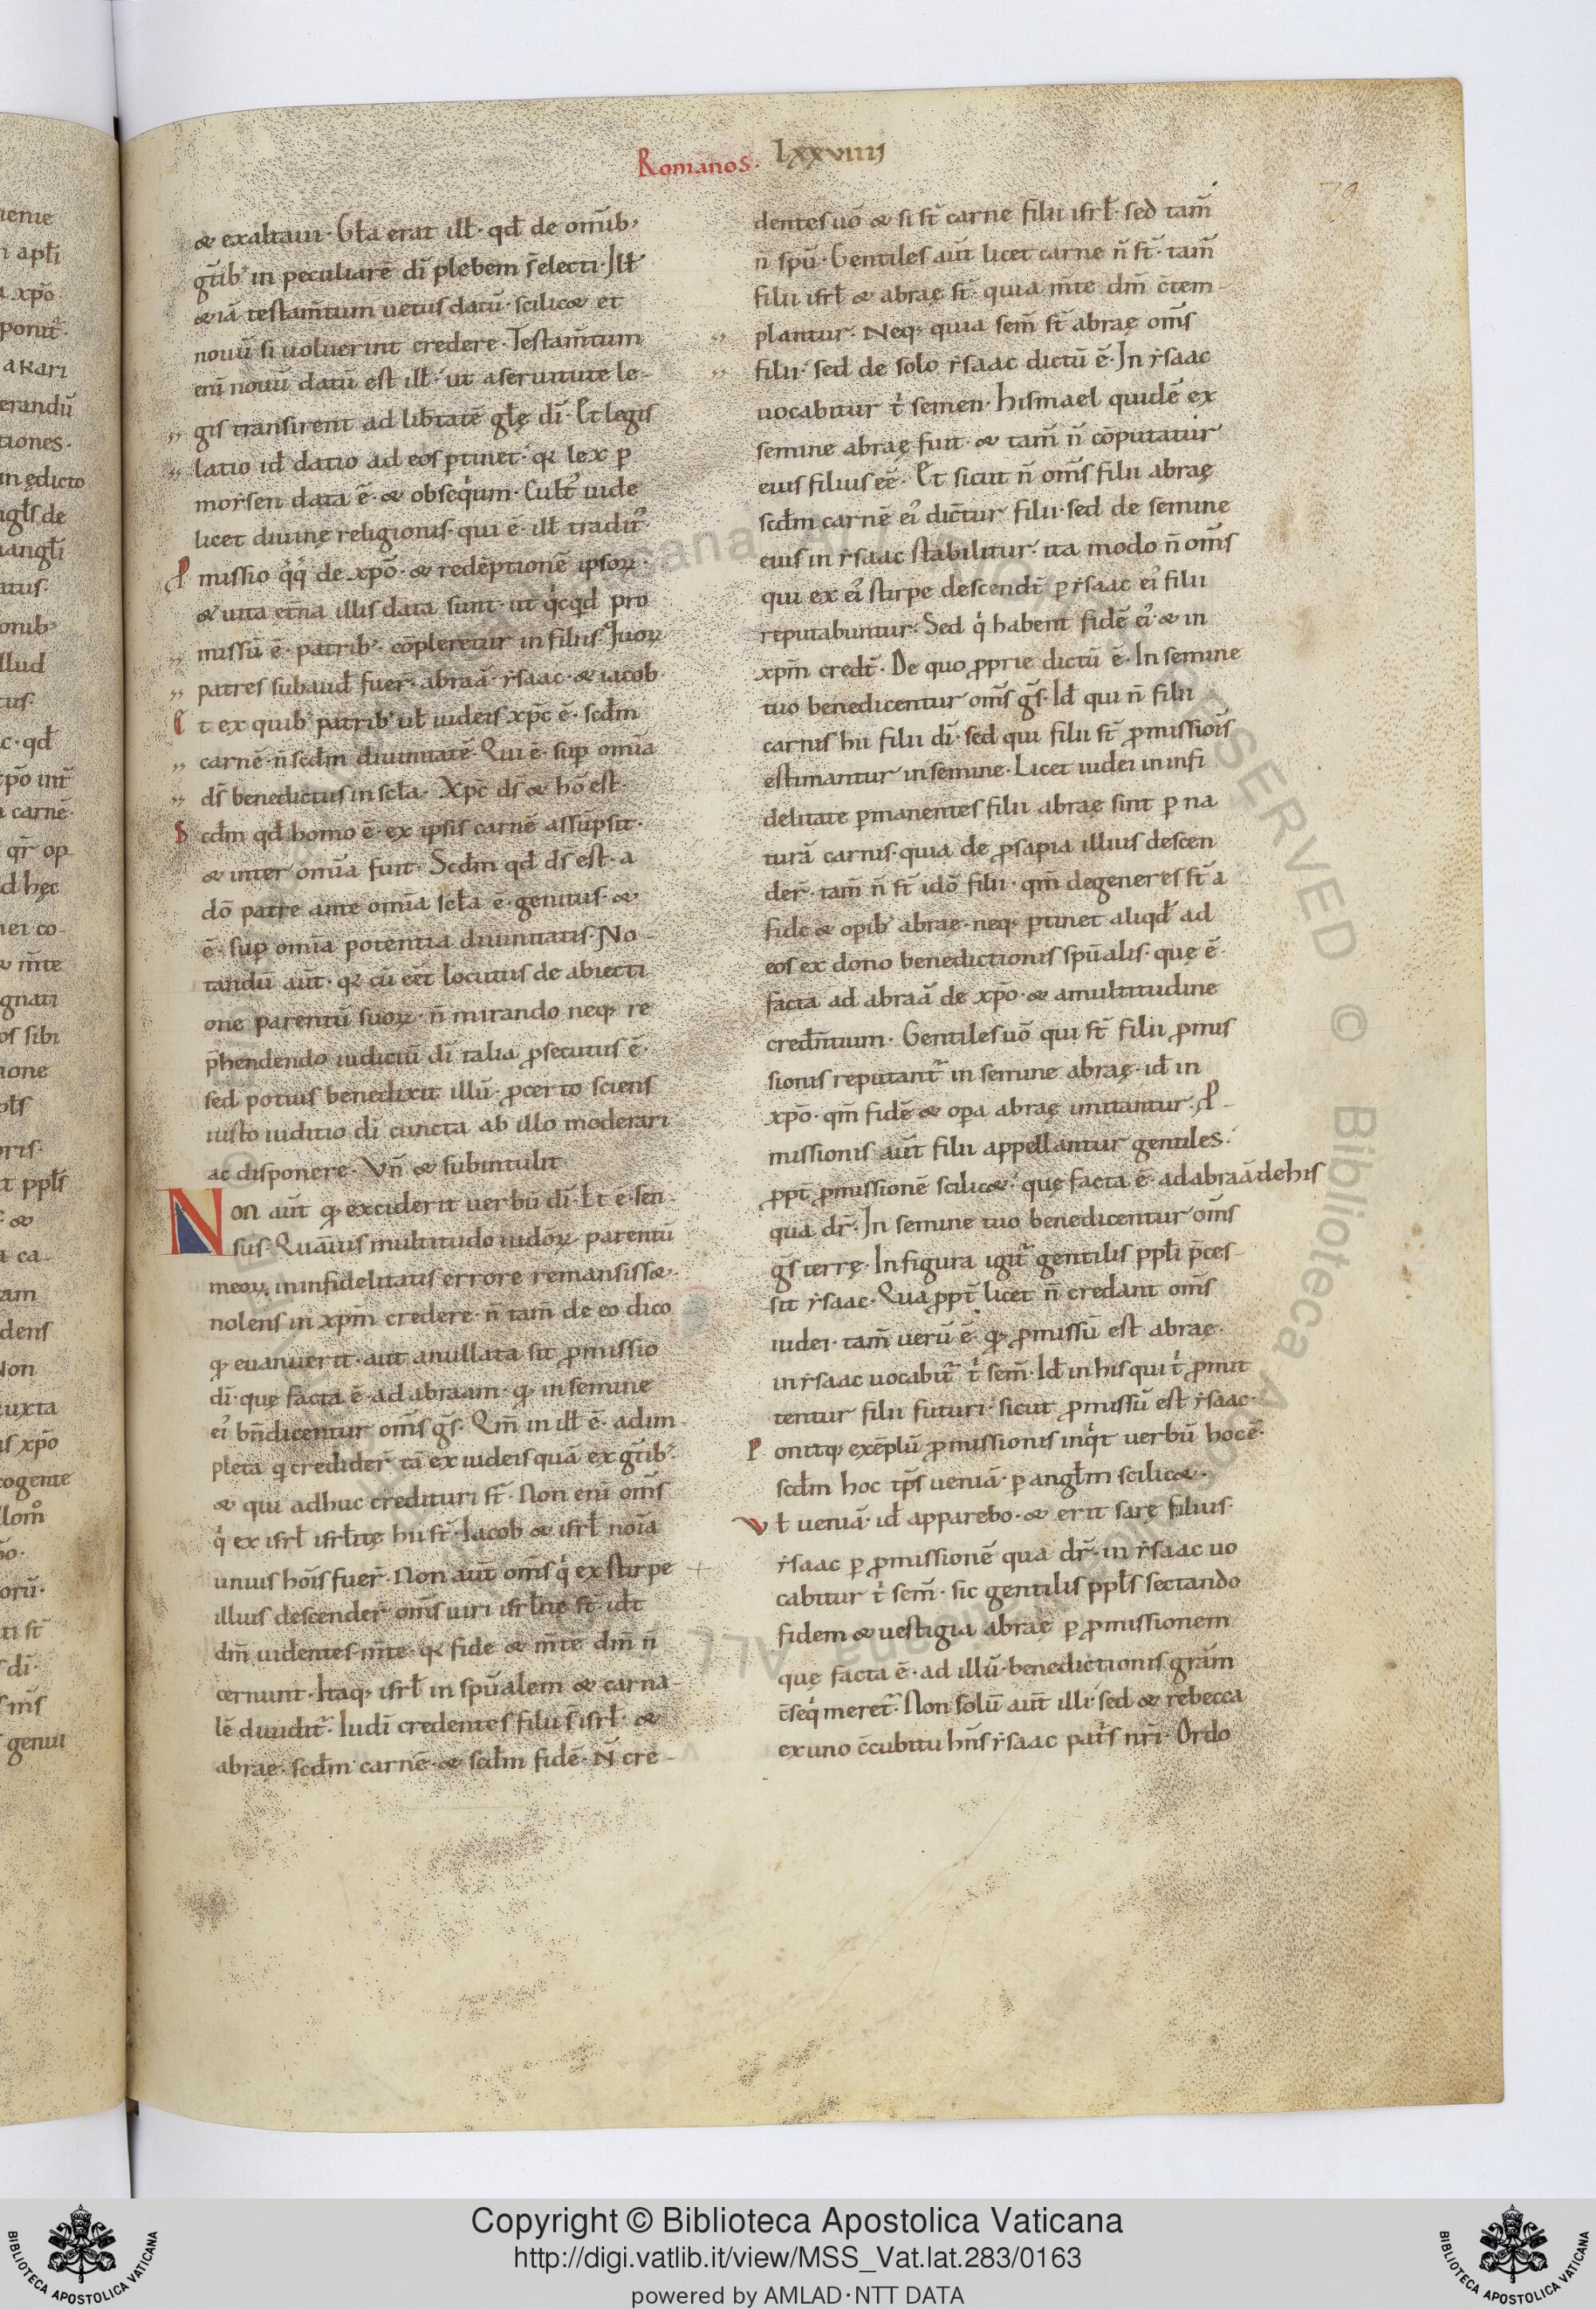 Romanos. lxxviiij
& exaltaui· Gl̄a erat ill̄· qd̄ de om̄ib;
gt̄ib; in peculiarē dī plebem s̄ electi· Ill̄
& iā testam̄tum uetus datū· scilic& et
nouū si uoluerint credere· Testam̄tum
eni nouū datū est ill̄· ut a seruitute le-
gis transirent ad lib̄tatē glę̄ dī· Et legis
latio id̄ datio ad eos ꝑtinet· qꝛ lex ꝑ
moẏsen data ē· & obseq̇um· Cult᷒ uide
licet diuinę religionis· qui ē· ill̄ tradit᷒·
P missio q̇q̇ de xp̄o· & redēptionē ipsoꝝ·
& uita et̄na illis data sunt· ut q̇cqd̄ pro
missū ē· patrib;· cōpleretur in filiis· Quoꝝ
patres subaud̄ fuer̄· abraā· ẏsaac· & iacob·
E t ex quib; patrib; ul̄ iudeis xp̄c ē· scd̄m
carnē· n̄ scd̄m diuinitatē· Qui ē· sup̄ om̄ia
ds̄ benedictus in scl̄a· Xp̄c ds̄ & hō est·
S cd̄m qd̄ homo ē· ex ipsis carnē assūpsit·
& inter om̄ia fuit· Scd̄m qd̄ ds̄ est· a
dō patre ante om̄ia scl̄a ē· genitus· &
ē· sup̄ om̄ia potentia diuinitatis· No-
tandū aut̄· qꝛ cū eēt locutus de abiecti
one parentū suoꝝ· n̄ mirando neq; re
p̄hendendo iudiciū dī talia ꝓsecutus ē·
sed potius benedixit illū· ꝓcerto sciens
iusto iuditio dī cuncta ab illo moderari
ac disponere· Vn̄ & subintulit·
Non aut̄ qꝫ exciderit uerbū dī· Et ē· sen-
sus· Quāuis multitudo iudōꝝ parentū
meoꝝ, in infidelitatis errore remansiss&·
nolens in xp̄m credere· n̄ tam̄ de eo dico
qꝫ euanuerit· aut anullata sit ꝓmissio
dī· quę facta ē· ad abraam· qꝫ in semine
ei᷒ bn̄dicentur om̄s gs̄· Qm̄ in ill̄ ē· adim-
pleta q credider̄ tā ex iudeis quā ex gt̄ib;·
& qui adhuc credituri st̄· Non eni om̄s
q̇ ex isrl̄ isrl̄itę hii st̄· Iacob & isrl̄ noīa
unius hoīs fuer̄· Non aut̄ om̄s q̇ ex stirpe
illius descender̄ om̄s uiri isrl̄itę st̄· id̄
dm̄ uidentes m̄te· qꝛ fide & m̄te dm̄ n̄
cernunt· Itaq; isrl̄ in spūalem & carna-
lē diuidit᷒· Iudī credentes filii s̄ isrl̄· &
abrae· scd̄m carnē· & scd̄m fidē· N̄ cre-
dentes uō & si st̄ carne filii isrl̄· sed tam̄
n̄ spū· Gentiles aut̄ licet carne n̄ st̄· tam̄
filii isrl̄ & abrae st̄· quia m̄te dm̄ c̄tem-
plantur· Neq; quia sem̄ st̄ abrae om̄s
filii· sed de solo ẏsaac dictū ē· In ẏsaac
uocabitur t᷒ semen· Hismael quidē ex
semine abrae fuit· & tam̄ n̄ cōputatur
eius filius eē· Et sicut n̄ om̄s filii abrae
scd̄m carnē ei᷒ dic̄tur filii· sed de semine
eius in ẏsaac stabilitur· ita modo n̄ om̄s
qui ex ei᷒ stirpe descendt̄ ꝑ ẏsaac ei᷒ filii
reputabuntur· Sed q̇ habent fidē ei᷒ & in
xp̄m credt̄· De quo ꝓprie dictū ē· In semine
tuo benedicentur om̄s gs̄· Id̄ qui n̄ filii
carnis hii filii dī· sed qui filii st̄ ꝓmissioīs
estimantur in semine· Licet iudei in infi
delitate ꝑmanentes filii abrae sint ꝑ na
turā carnis· quia de ꝓsapia illius descen
der̄· tam̄ n̄ st̄ idō filii· qm̄ degeneres st̄ a
fide & opib; abrae· neq; ꝑtinet aliqd̄ ad
eos ex dono benedictionis spūalis· quę ē·
facta ad abraā de xp̄o· & a multitudine
cred̄ntium· Gentiles uō qui st̄ filii ꝓmis
sionis reputant᷒ in semine abrae· id̄ in
xp̄o· qm̄ fidē & oꝑa abrae imitantur· P-
missionis aut̄ filii appellantur gentiles·
ꝓpt̄ ꝓmissionē scilic&· quę facta ē· ad abraā de his
qua dr̄· In semine tuo benedicentur om̄s
gs̄ terrę· In figura igit᷒ gentilis ppl̄i p̄ces-
sit ẏsaac· Qua ꝓpt̄ licet n̄ credant om̄s
iudei· tam̄ uerū ē· qꝫ ꝓmissū est abrae·
in ẏsaac uocabit᷒ t᷒ sem̄· Id̄ in his qui t᷒ ꝓmit
tentur filii futuri· sicut ꝓmissū est ẏsaac·
P onitq; exēplū ꝓmissionis inq̇t uerbū hoc ē·
scd̄m hoc tp̄s ueniā· ꝑ angl̄m scilic&·
V l̄ ueniā· id̄ apparebo· & erit sarę filius·
ẏsaac ꝑ ꝓmissionē qua dr̄· in ẏsaac uo
cabitur t᷒ sem̄· sic gentilis ppl̄s sectando
fidem & uestigia abrae ꝑ ꝓmissionem
quę facta ē· ad illū· benedictionis grām
c̄seq̇ meret᷒· Non solū aut̄ illi· sed & rebecca
ex uno c̄cubitu hn̄s ẏsaac pat᷒s nr̄i· Ordo
Copyright © Biblioteca Apostolica Vaticana
http://digi.vatlib.it/view/MSS_Vat.lat.283/0163
powered by AMLAD·NTT DATA
BIBLIOTECA APOSTOLICA VATICANA
BIBLIOTECA APOSTOLICA VATICANA